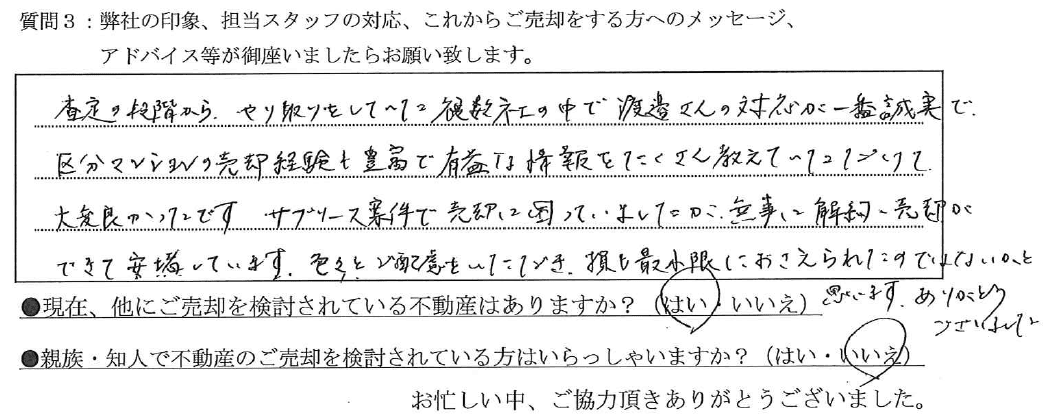 質問３：弊社の印象、担当スタッフの対応、これからご売却をする方へのメッセージ、
アドバイス等が御座いましたらお願い致します。
査定の段階から、やり取りをしていた複数社の中で渡邉さんの対応が一番誠実で、
区分マンションの売却経験も豊富で有益な情報をたくさん教えていただけて
大変良かったです サブリース案件で売却に困っていましたが、無事に解約、売却が
できて安堵しています。色々とご配慮をいただき、損も最小限におさえられたのではないかと
思います。ありがとう
ございました
●現在、他にご売却を検討されている不動産はありますか？（はい・いいえ）
●親族・知人で不動産のご売却を検討されている方はいらっしゃいますか？（はい・いいえ）
お忙しい中、ご協力頂きありがとうございました。